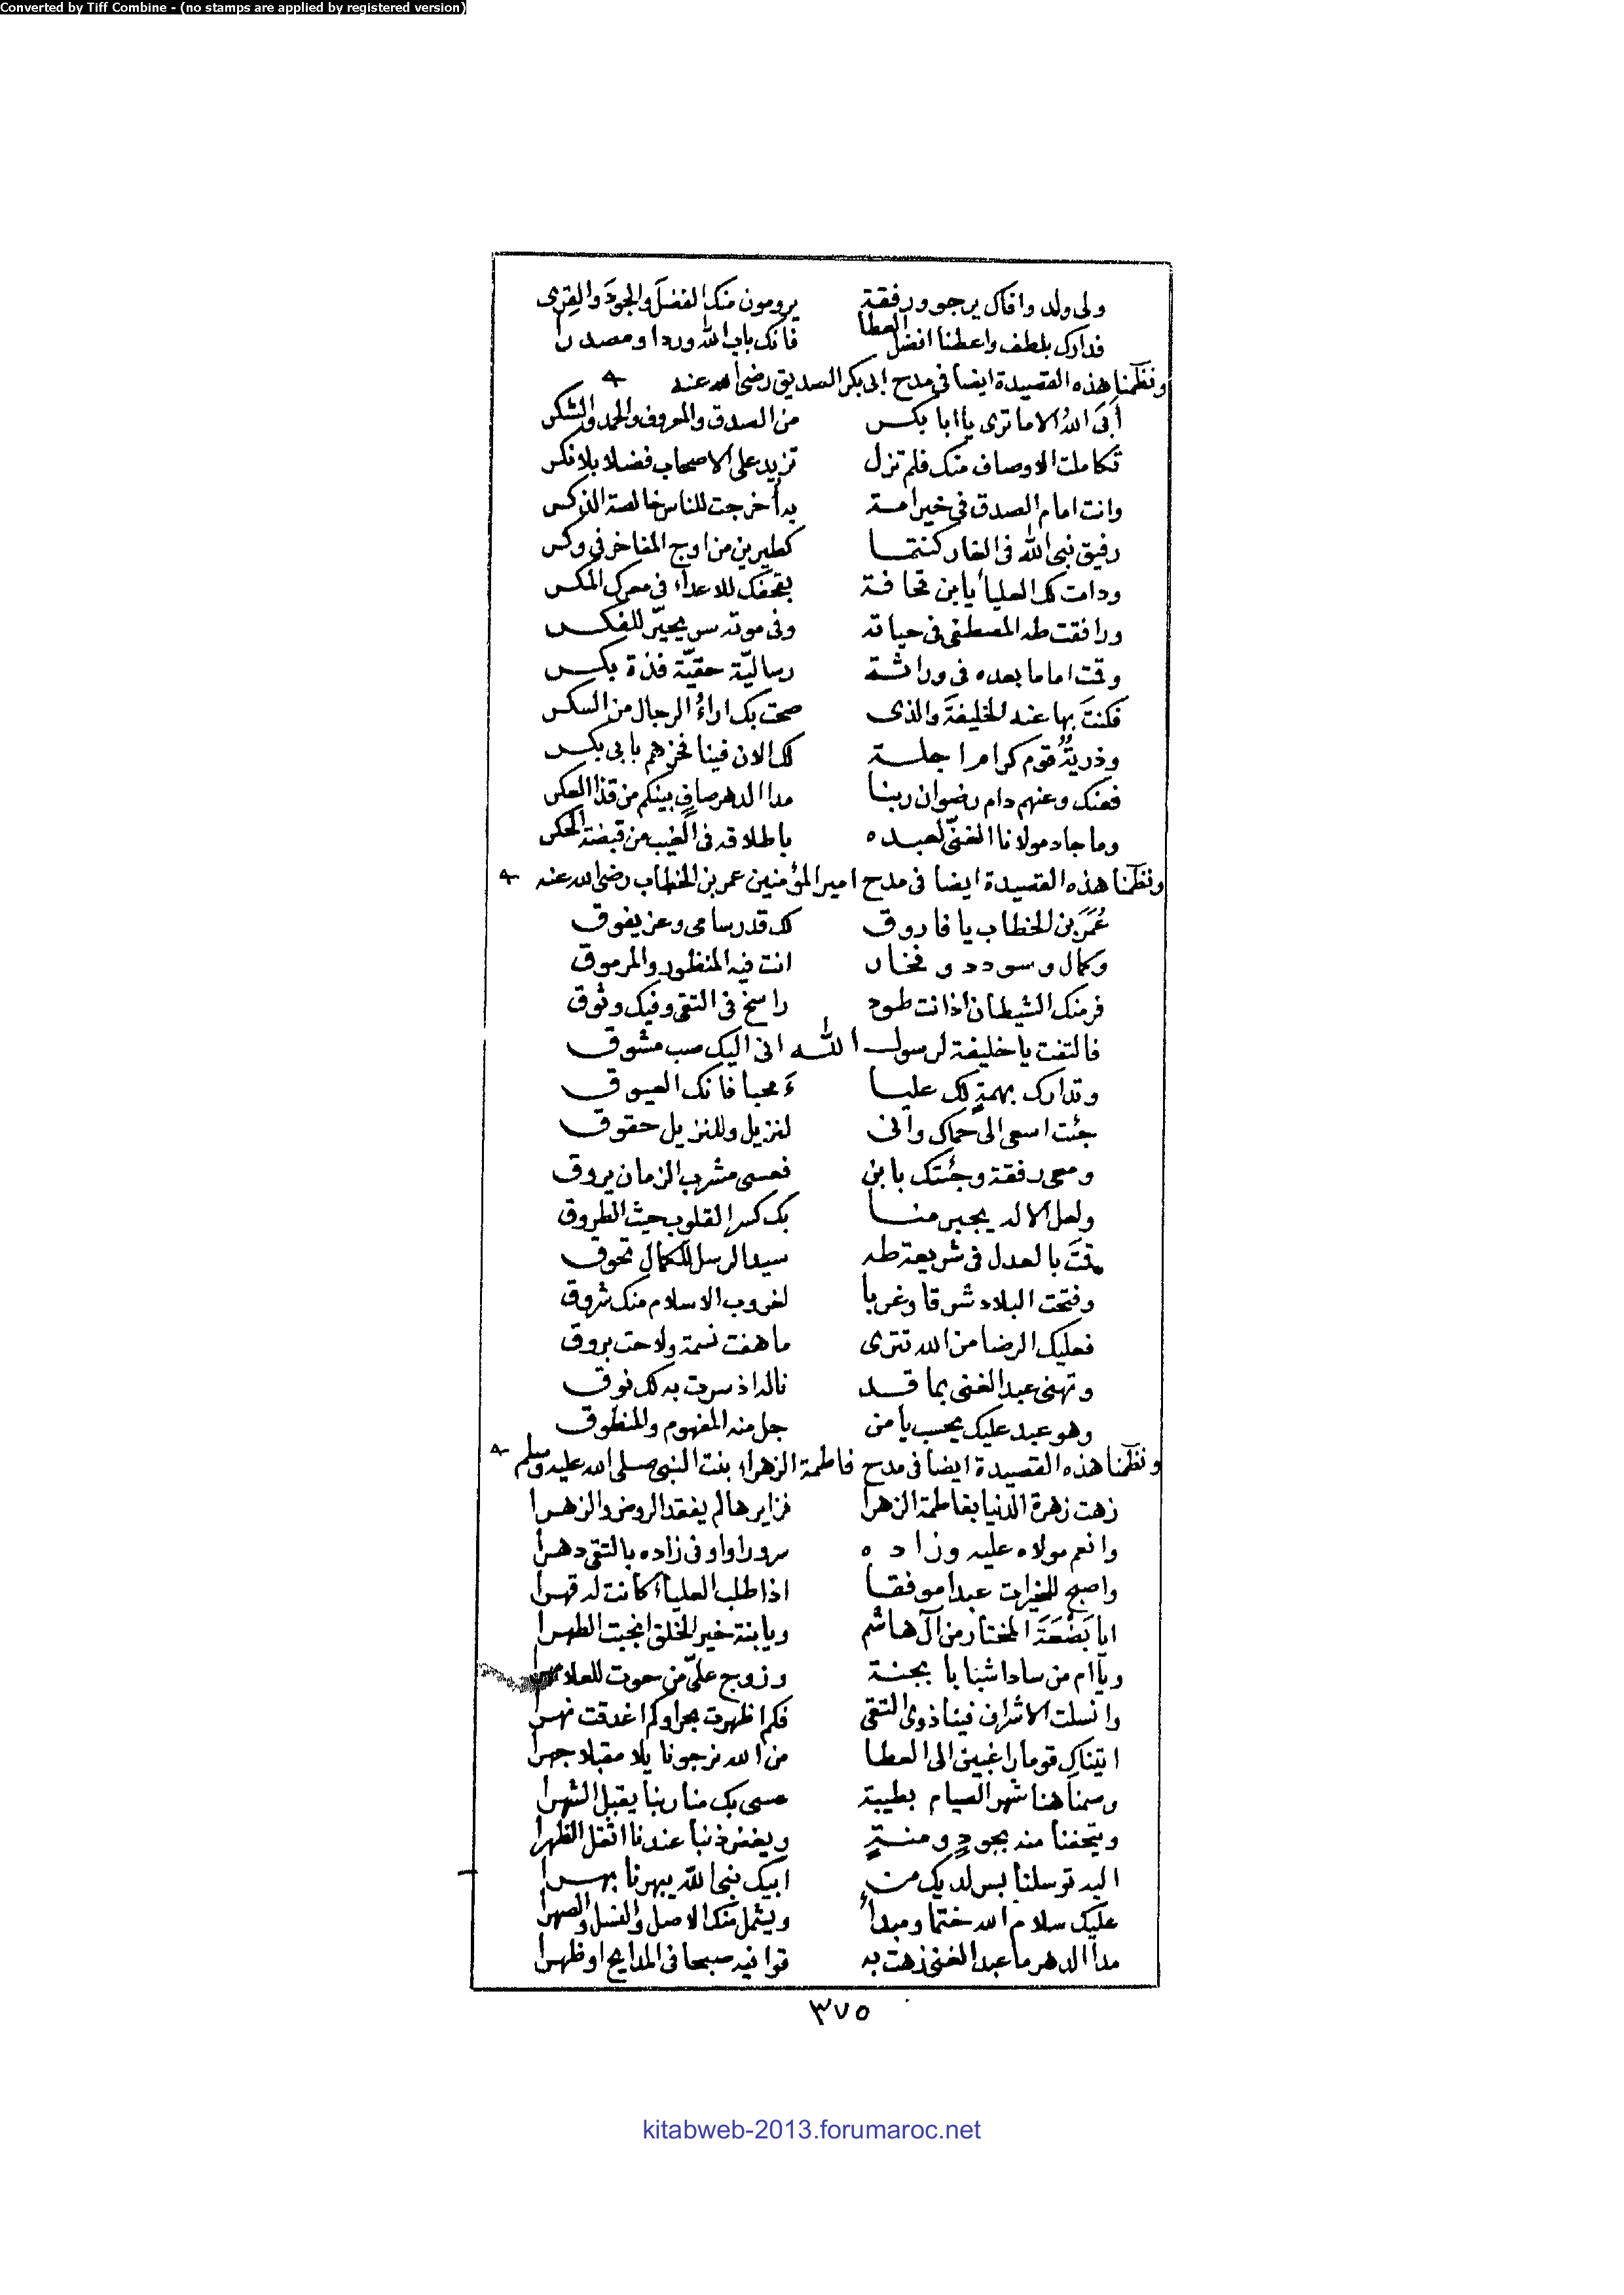 Converted by Tiff Combine - (no stamps are applied by registered version)
ولى ولد وافاك يرجو ورفقة يرومون منك الفضلَ والجودَ والقِرى
فدارك بلطف واعطنا افضل العطا فانك باب الله وردا ومصدرا
ونظمنا هذه القصيدة ايضا فى مدح ابى بكر الصديق رضى الله عنه
أبَى اللهُ الا ما ترى يا ابا بكر من الصدق والمعروف والحمد والشكر
تكاملت الاوصاف منك فلم تزل تزيد على الاصحاب فضلا بلا نكر
وانت امام الصدق فى خير امة بدأ خرجت للناس خالصة الذكر
رفيق نبى الله فى الغار كنتما كطيرين من اوج المفاخر فى وكر
ودامت لك العلياء يا ابن قحافة بقحفك للاعداء فى معرك المكر
ورافقت طه المصطفى فى حياته وفى موته سر يحيّر للفكر
وقمت اماما بعده فى وراثة رساليّة حقيّة فذة بكر
فكنتَ بها عند الخليفةَ والذى صحت بك اراءُ الرجال من السكر
وذريةٌ قوم كرام اجلة لك الان فينا فخرهم بابى بكر
فعنك وعنهم دام رضوان ربنا مدا الدهر صافٍ بينكم من قذا العكر
وما جاد مولانا الغنىّ لعبده باطلاقه فى الغيب من قبضة الحكر
ونظمنا هذه القصيدة ايضا فى مدح امير المؤمنين عمر بن الخطاب رضى الله عنه
عُمَرَ بن الخطاب يا فاروق لك قدر سامى وعز يفوق
وكمال وسودد وفخار انت فيه المنظور والمرموق
فر منك الشيطان اذ انت طود راسخ فى التقى وفيك وثوق
فالتفت يا خليفة لرسول الله انى اليك صب مشوق
وتدارك بهمةٍ لك عليا ءَ محبا فانك العيوق
جئت اسعى الى حماك وانى لنزيل وللنزيل حقوق
ومعى رفقة وجئتك بابن فعسى مشرب الزمان يروق
ولعل الاله يجبر منا بك كسر القلوب حيث الطروق
قمتَ بالعدل فى شريعة طه سيد الرسل للكمال تحوق
وفتحت البلاد شرقا وغربا لغروب الاسلام منك شروق
فعليك الرضا من الله تترى ما هفت نسمة ولاحت بروق
وتهنى عبد الغنى بما قد ناله اذ سرت به لك نوق
وهو عبد عليك يحسب يا من جل منه المفهوم والمنطوق
ونظمنا هذه القصيدة ايضا فى مدح فاطمة الزهراء بنت النبى صلى الله عليه وسلم
زهت زهرة الدنيا بفاطمة الزهرا فزايرها لم يفقد الروض والزهرا
وانعم مولاه عليه وزاده سرورا واوفى زاده بالتقى دهرا
واصبح للخيرات عبدا موفقا اذا طلب العلياء كانت له قهرا
ايا بَضْعَةَ المختار من آل هاشم ويا بنة خير الخلق انجبت الطهرا
ويآام من سادا شبابا بجنة وزوج علىّ من حوت للعلا
وانسلت الاشراف فينا ذوى التقى فكم اظهرت بحرا وكم اغدقت نهرا
اتيناكِ قوما راغبين الى العطا من الله نرجو نايلا مقبلا جهرا
وصمنا هنا شهر الصيام بطيبة عسى بك منا ربنا يقبل الشهرا
ويتحفنا منه بجودٍ ومنةٍ ويغفر ذنبا عندنا اثقل الظهرا
اليه توسلنا بسر لديك من ابيك نبى الله يبهرنا بهرا
عليك سلام الله ختما ومبدأ ويشمل منك الاصل والنسل والصهرا
مدا الدهر ما عبد الغنى زهت به قوافيه صبحا فى المدايح او ظهرا
٣٧٥
kitabweb-2013.forumaroc.net